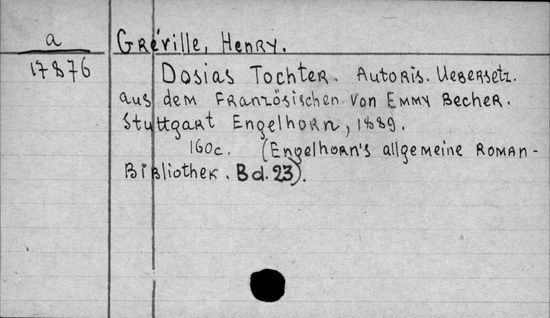 a
Gréville, Henry.
17876
Dosias Tochter. Autoris. Uebersetz.
aus dem Französischen von Emmy Becher.
Stuttgart Engelhorn, 1889.
160c. (Engelhorn's allgemeine Roman-
Bibliothek. Bd. 23).